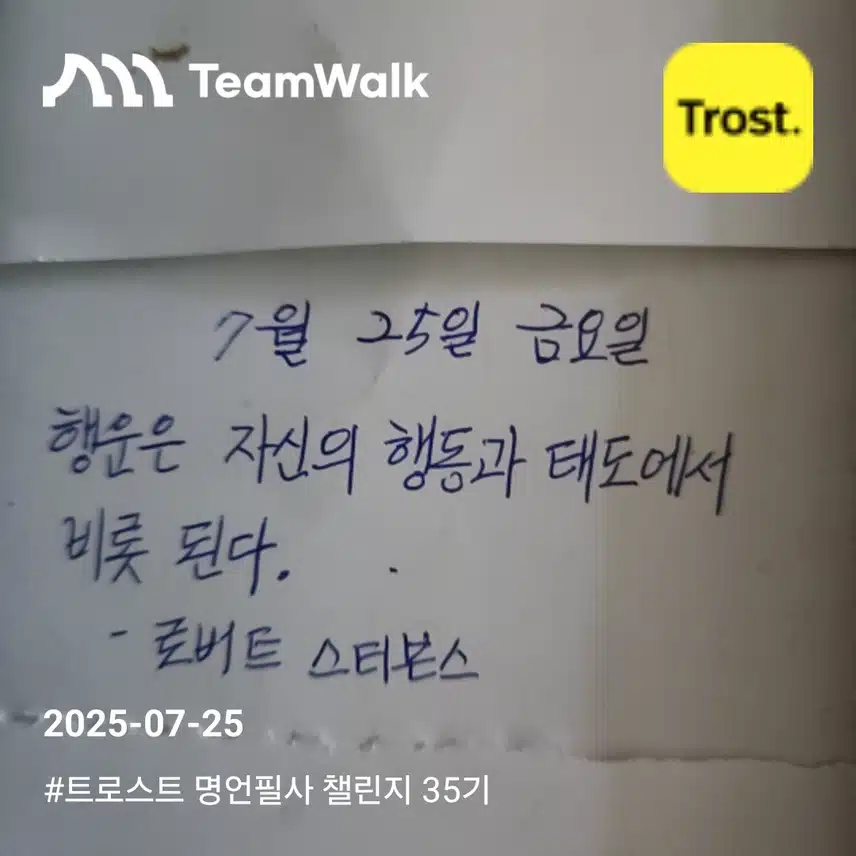 TeamWalk
Trost.
7월 25일 금요일
행운은 자신의 행동과 태도에서
비롯 된다.
- 로버트 스티븐스
2025-07-25
#트로스트 명언필사 챌린지 35기